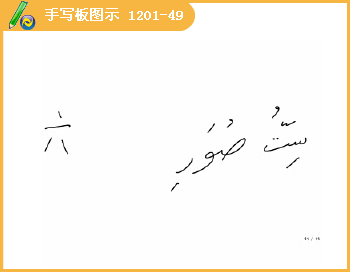 手写板图示 1201-49
六 سِتُّ صُوَرٍ